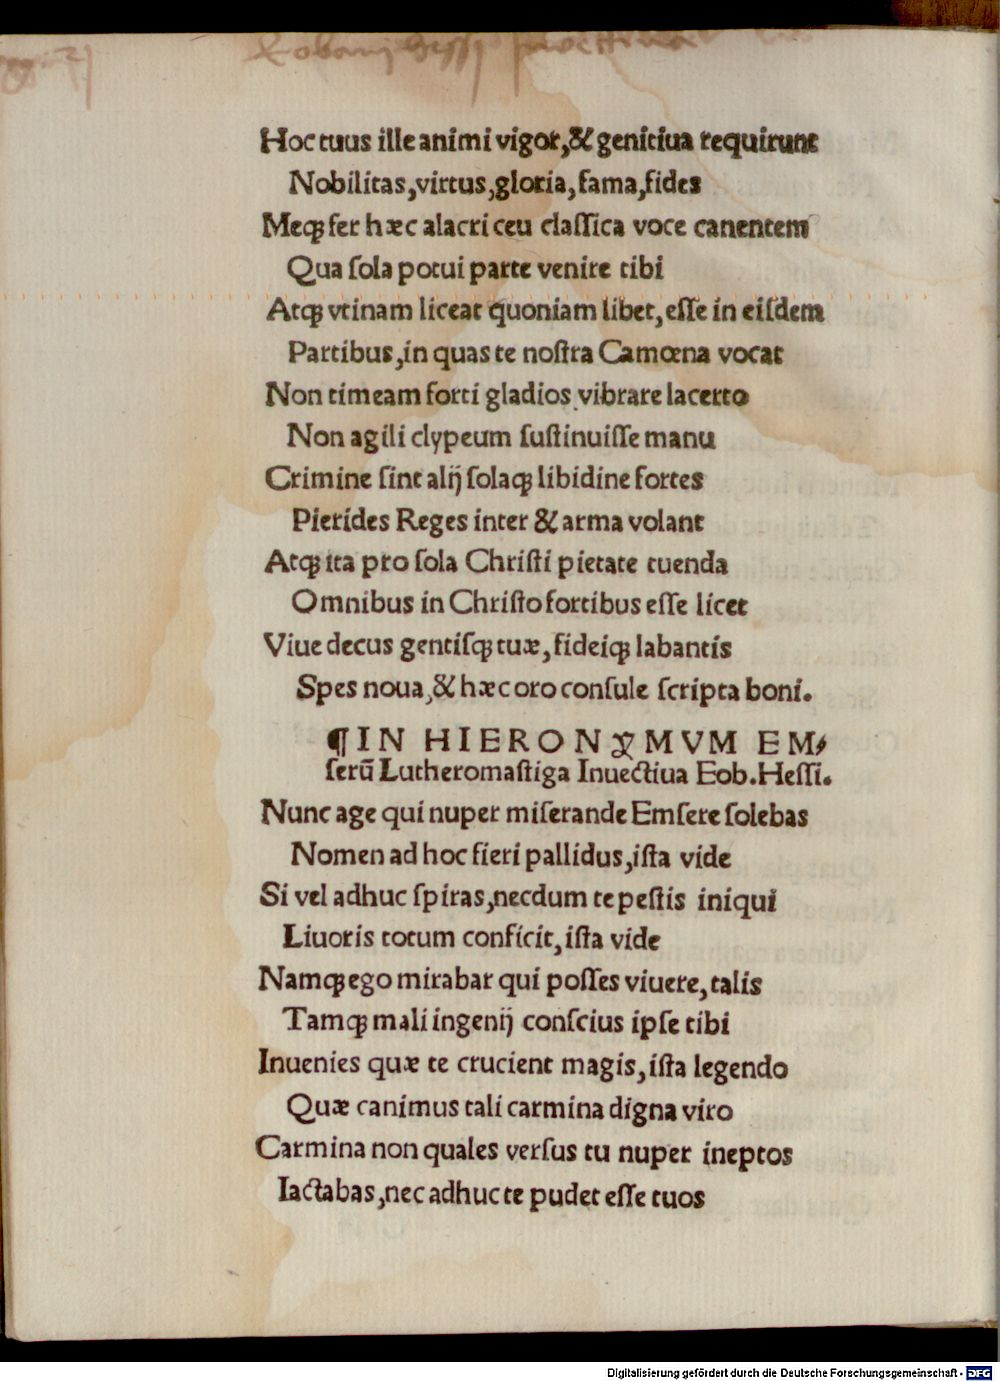 Eobani Hessi Invectiva
Hoc tuus ille animi vigor,& genitiua requirunt
Nobilitas,virtus,gloria,fama,fides
Meqꝫ fer hæc alacri ceu claſſica voce canentem
Qua ſola potui parte venire tibi
Atqꝫ vtinam liceat quoniam libet,eſſe in eiſdem
Partibus,in quas te noſtra Camœna vocat
Non timeam forti gladios vibrare lacerto
Non agili clypeum ſuſtinuiſſe manu
Crimine ſint alij ſolaqꝫ libidine fortes
Pierides Reges inter & arma volant
Atqꝫ ita pro ſola Chriſti pietate tuenda
Omnibus in Chriſto fortibus eſſe licet
Viue decus gentiſqꝫ tuæ,fideiqꝫ labantis
Spes noua,& hæc oro conſule ſcripta boni.
¶IN HIERONYMVM EM⸗
ſerū Lutheromaſtiga Inuectiua Eob.Heſſi.
Nunc age qui nuper miſerande Emſere ſolebas
Nomen ad hoc fieri pallidus,iſta vide
Si vel adhuc ſpiras,necdum te peſtis iniqui
Liuoris totum conficit,iſta vide
Namqꝫ ego mirabar qui poſſes viuere,talis
Tamqꝫ mali ingenij conſcius ipſe tibi
Inuenies quæ te crucient magis,iſta legendo
Quæ canimus tali carmina digna viro
Carmina non quales verſus tu nuper ineptos
Iactabas,nec adhuc te pudet eſſe tuos
Digitalisierung gefördert durch die Deutsche Forschungsgemeinschaft - DFG